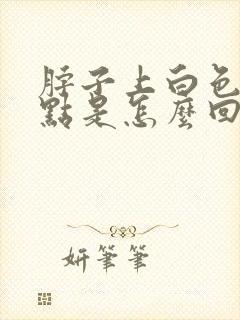 脖子上白色
點是怎麼回
妍筆筆